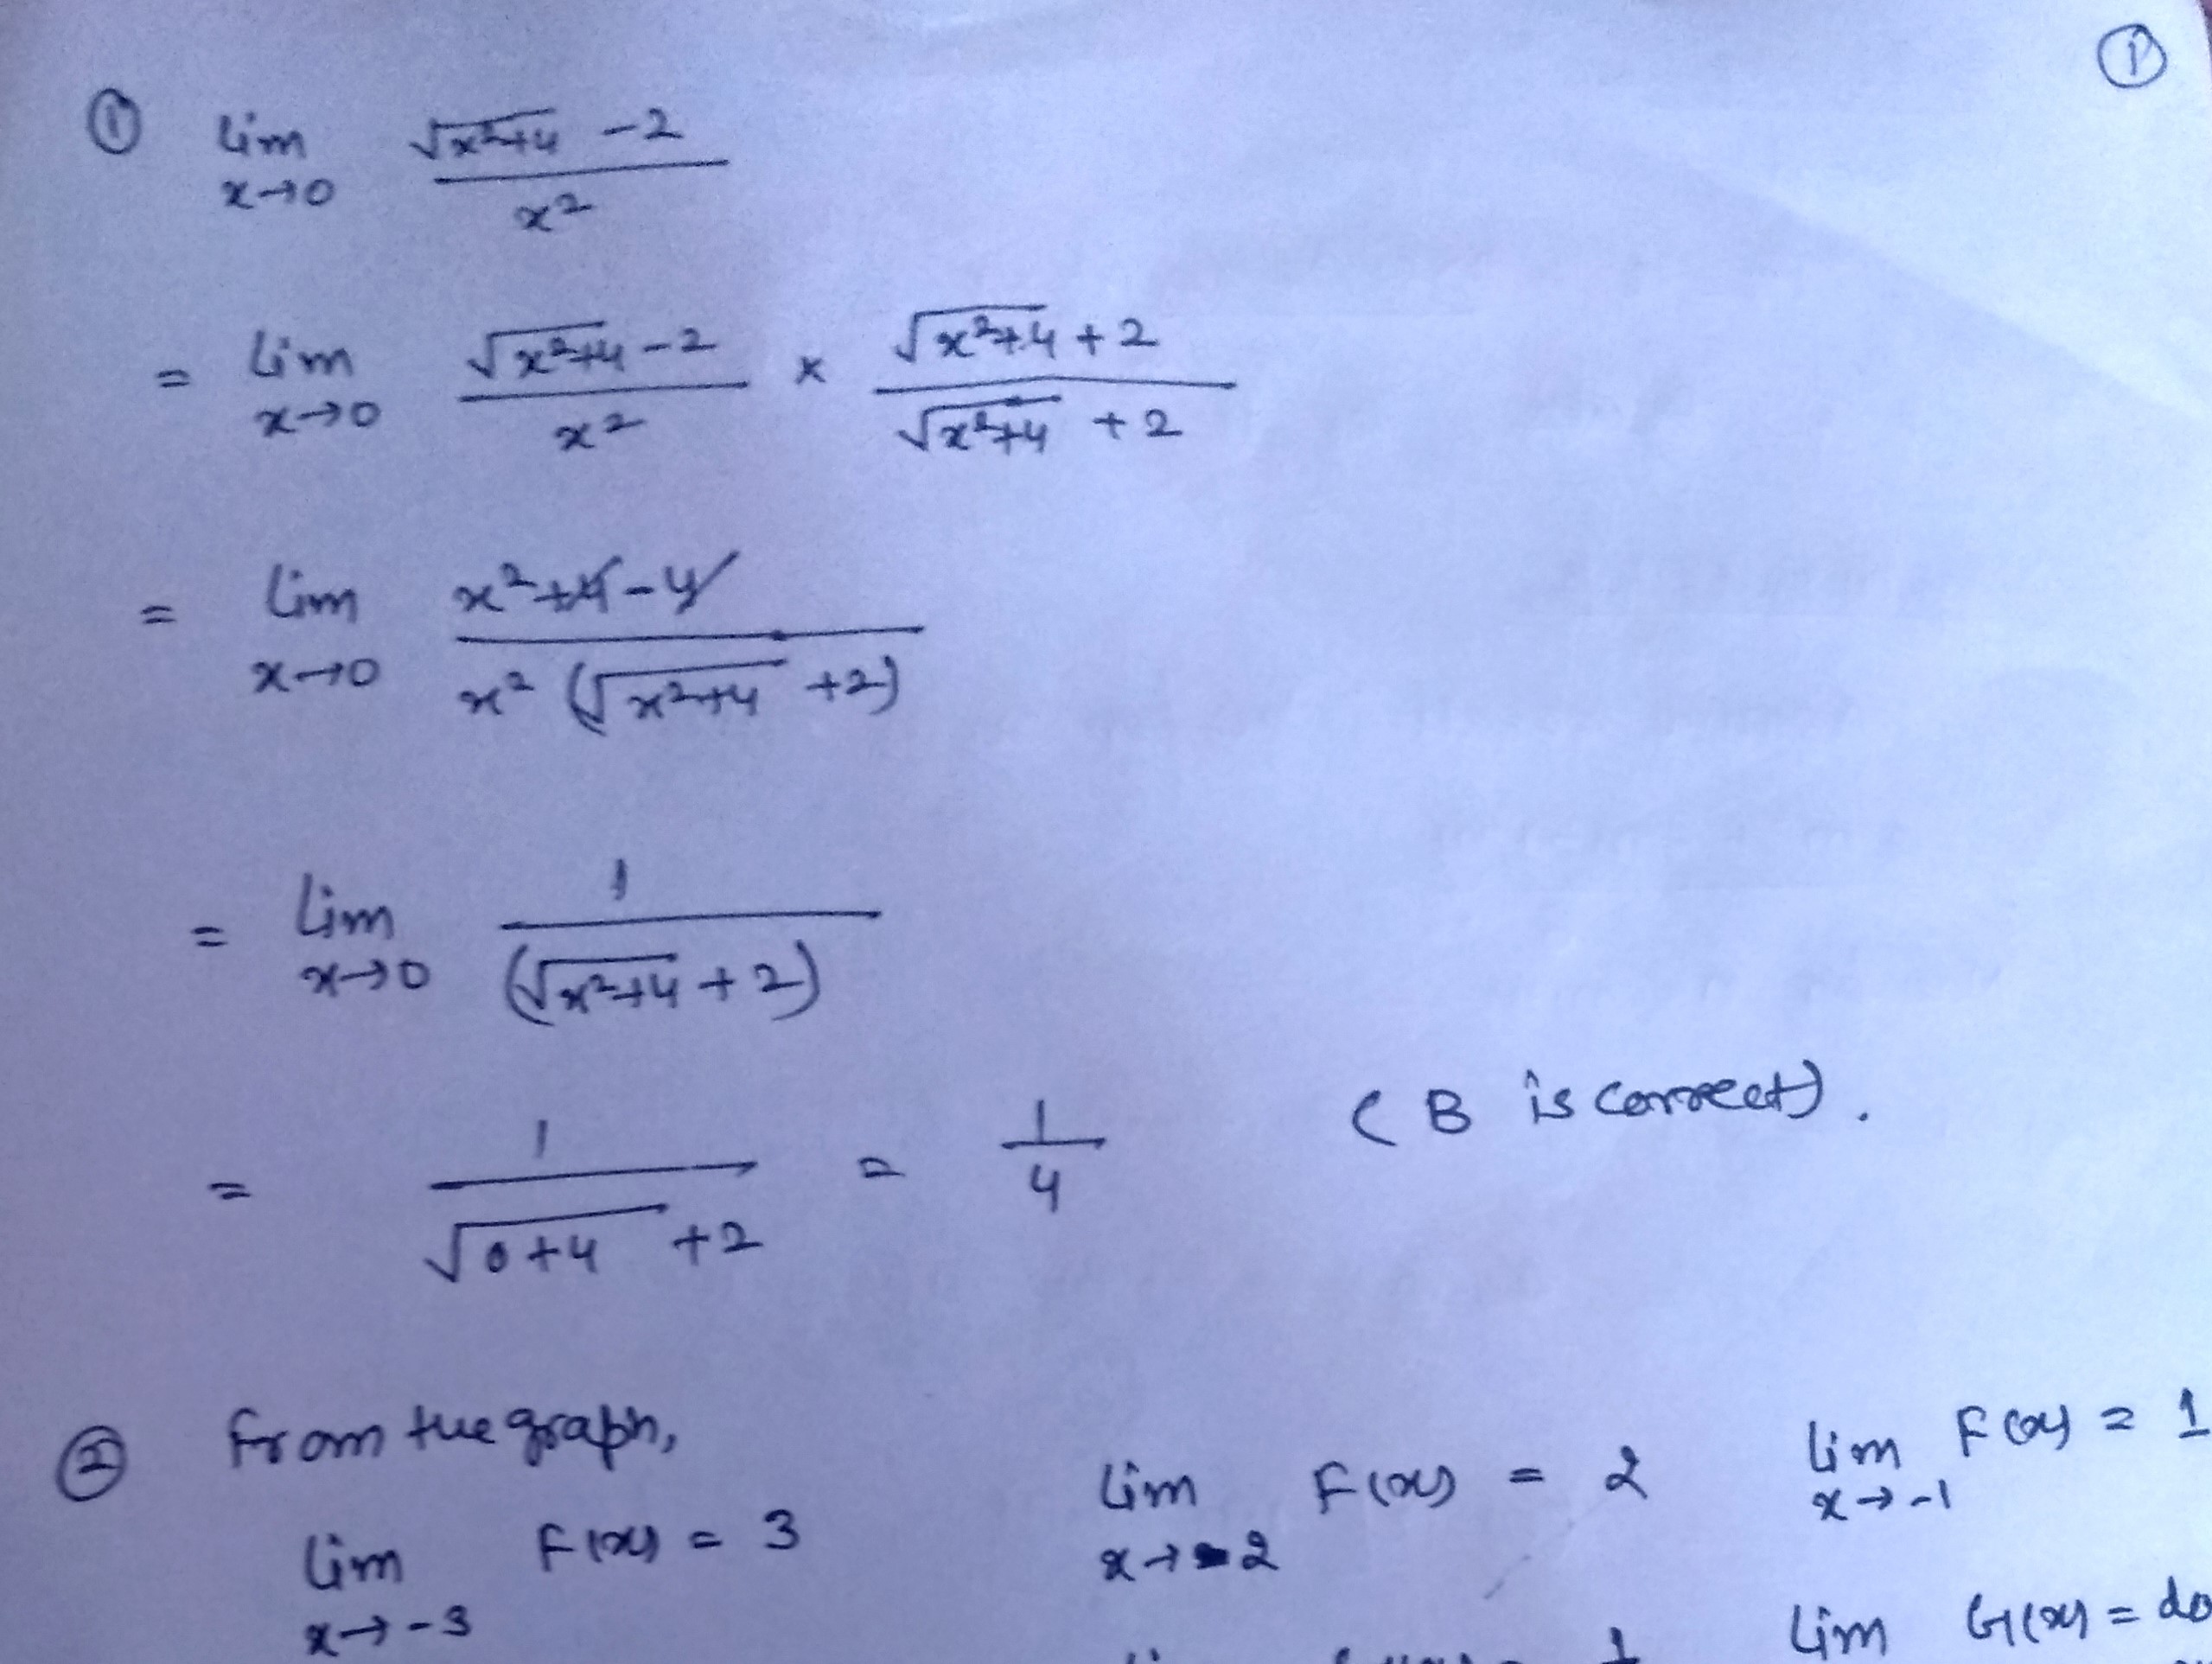 ①
① lim x→0 (√(x²+4) -2)/x²
= lim x→0 (√(x²+4) -2)/x² × (√(x²+4) +2)/(√(x²+4) +2)
= lim x→0 (x²+4-4)/(x² (√(x²+4) +2))
= lim x→0 1/(√(x²+4) +2)
= 1/(√(0+4) +2) = 1/4 (B is correct).
② From the graph,
lim x→-3 F(x) = 3 lim x→-2 F(x) = 2 lim x→-1 F(x) = 1
lim G(x) = do